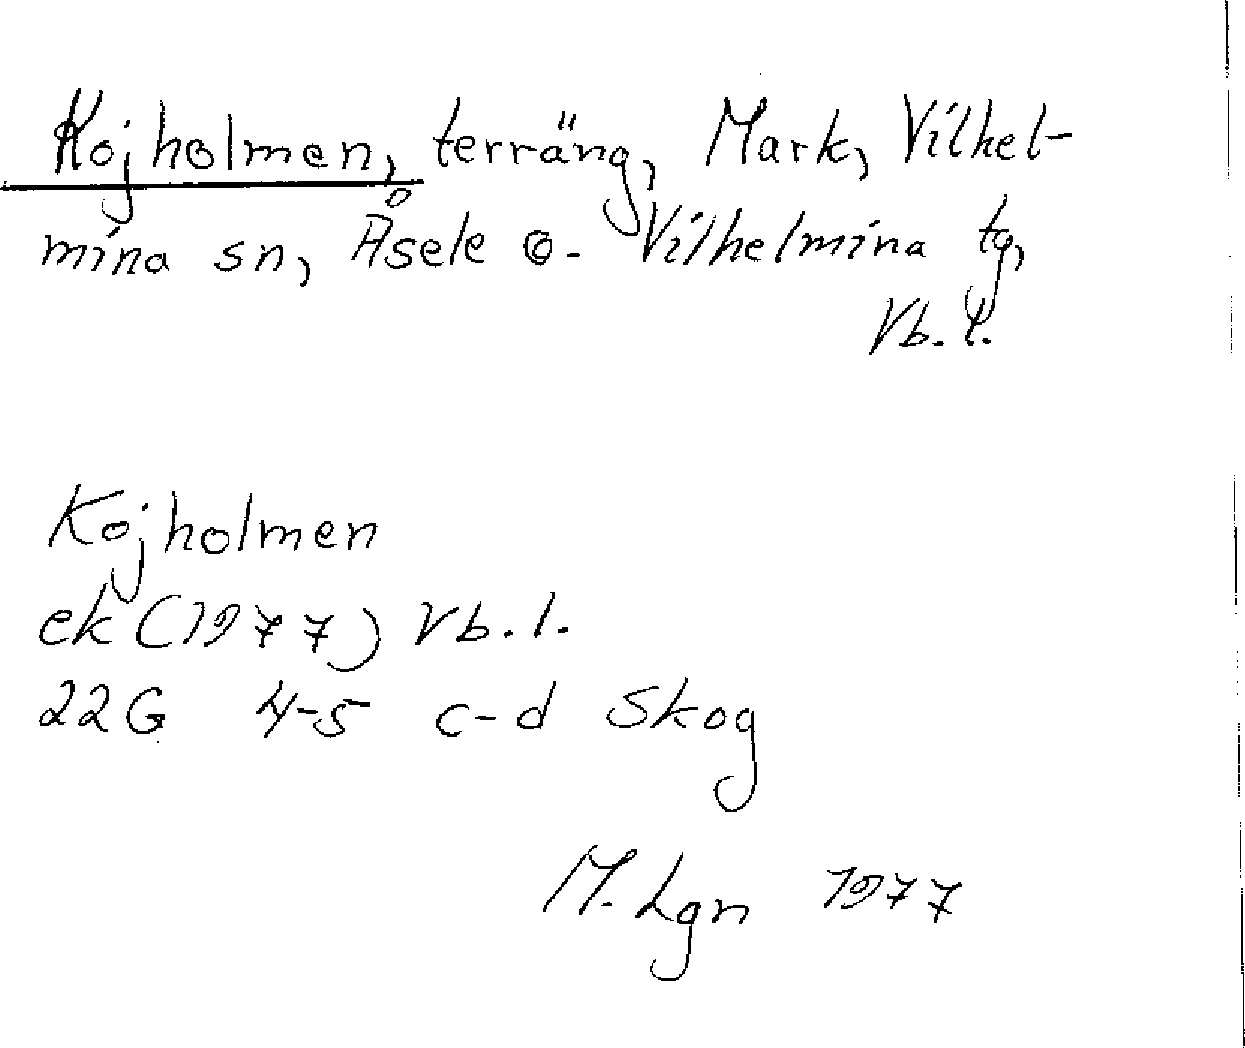 Kojholmen, terräng, Mark, Vilhel-
mina sn, Åsele o. Vilhelmina tg,
Vb. l.
Kojholmen
ek (1977) Vb. l.
22G 4-5 c-d Skog
M. Lgn 1977